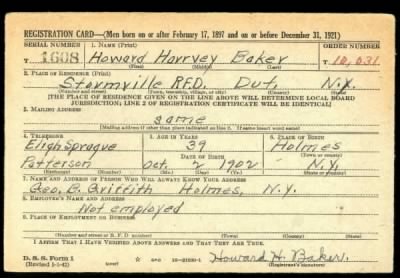 REGISTRATION CARD—(Men born on or after February 17, 1897 and on or before December 31, 1921)
SERIAL NUMBER 1. NAME (Print) ORDER NUMBER
T 1608 Howard Harvey Baker T 10,031
(First) (Middle) (Last)
2. PLACE OF RESIDENCE (Print)
Stormville R.F.D. Dut. N.Y.
(Number and street) (Town, township, village, or city) (County) (State)
[THE PLACE OF RESIDENCE GIVEN ON THE LINE ABOVE WILL DETERMINE LOCAL BOARD
JURISDICTION; LINE 2 OF REGISTRATION CERTIFICATE WILL BE IDENTICAL]
3. MAILING ADDRESS
same
[Mailing address if other than place indicated on line 2. If same insert word same]
4. TELEPHONE 5. AGE IN YEARS 6. PLACE OF BIRTH
Eligh Sprague 39 Holmes
DATE OF BIRTH (Town or county)
Patterson Oct. 2 1902 N.Y.
(Exchange) (Number) (Mo.) (Day) (Yr.) (State or country)
7. NAME AND ADDRESS OF PERSON WHO WILL ALWAYS KNOW YOUR ADDRESS
Geo. B. Griffith Holmes, N.Y.
8. EMPLOYER'S NAME AND ADDRESS
Not employed
9. PLACE OF EMPLOYMENT OR BUSINESS
(Number and street or R. F. D. number) (Town) (County) (State)
I AFFIRM THAT I HAVE VERIFIED ABOVE ANSWERS AND THAT THEY ARE TRUE.
D. S. S. Form 1 Howard H. Baker
(Revised 1-1-42) GPO 16—21630-1 (Registrant's signature)